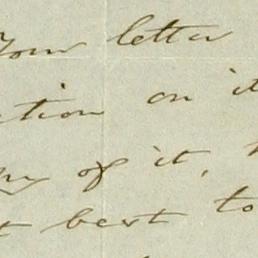 Your letter
ction on it
ny of it,
t best to